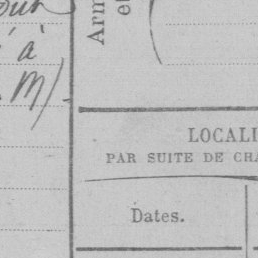 à
M)
Arm
et
LOCALI
PAR SUITE DE CHA
Dates.